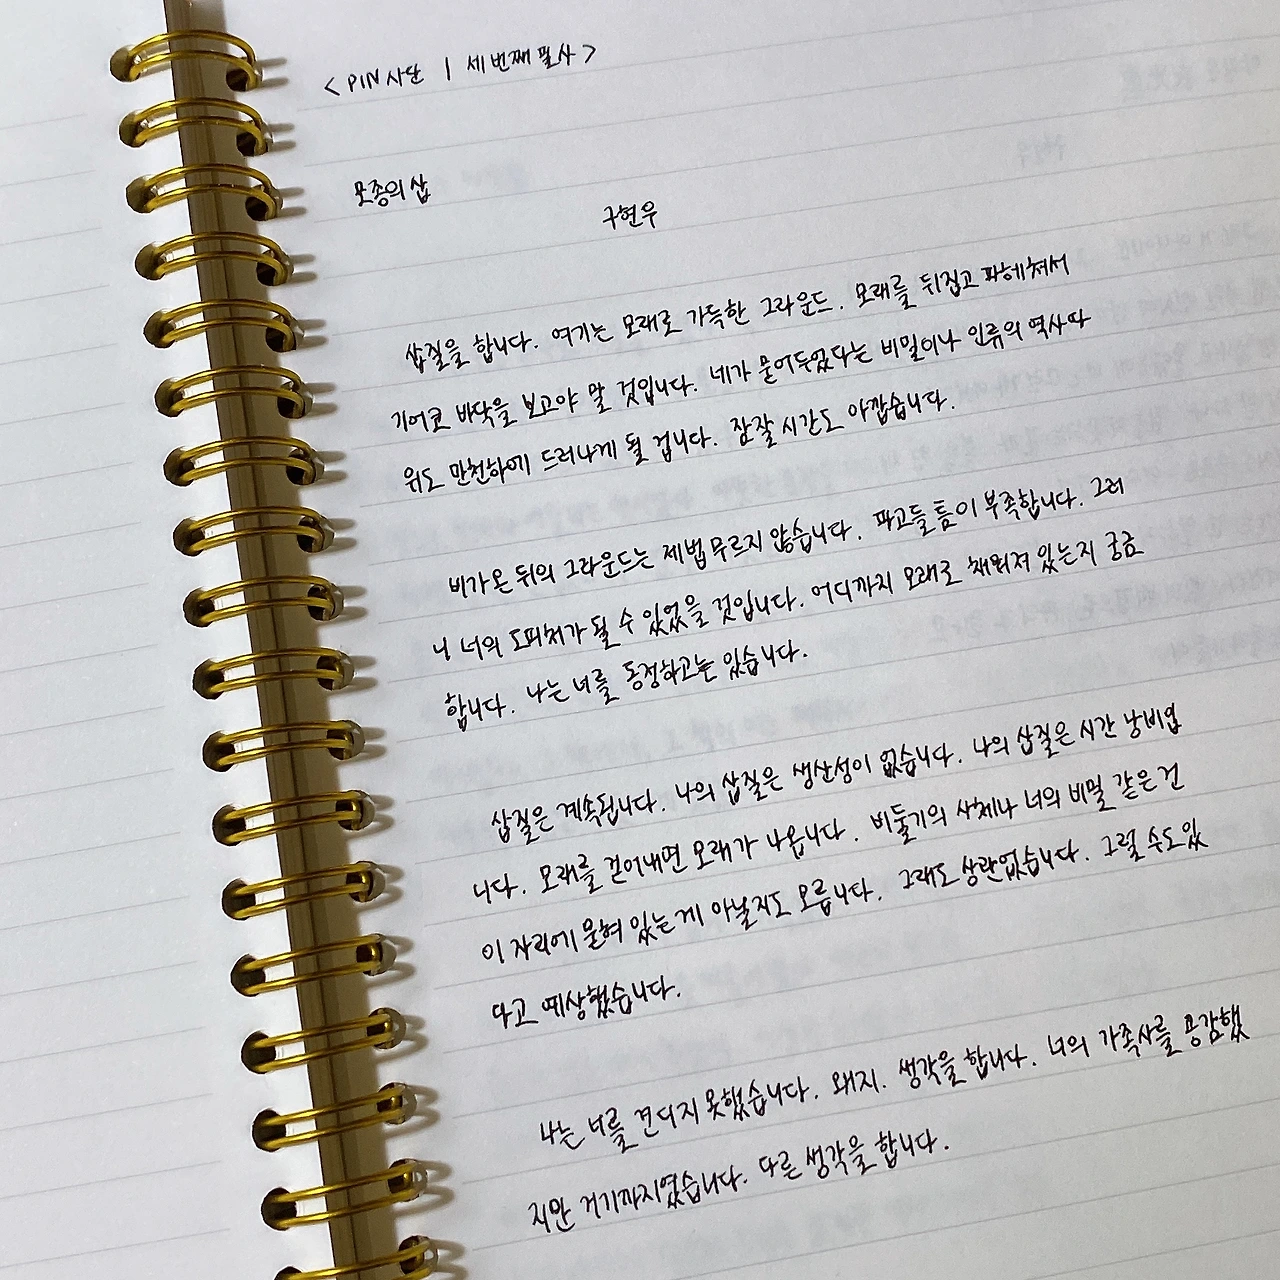 <PIN사단 | 세번째 필사>
모종의 삽
구현우
삽질을 합니다. 여기는 모래로 가득한 그라운드. 모래를 뒤집고 파헤쳐서
기어코 바닥을 보고야 말 것입니다. 네가 묻어두었다는 비밀이나 인류의 역사따
위도 만천하에 드러나게 될 겁니다. 잠잘 시간도 아깝습니다.
비가 온 뒤의 그라운드는 제법 무르지 않습니다. 파고들 틈이 부족합니다. 그러
니 너의 도피처가 될 수 있었을 것입니다. 어디까지 모래로 채워져 있는지 궁금
합니다. 나는 너를 동정하고는 있습니다.
삽질은 계속됩니다. 나의 삽질은 생산성이 없습니다. 나의 삽질은 시간 낭비입
니다. 모래를 걷어내면 모래가 나옵니다. 비둘기의 사체나 너의 비밀 같은 건
이 자리에 묻혀 있는 게 아닐지도 모릅니다. 그래도 상관없습니다. 그럴 수도 있
다고 예상했습니다.
나는 너를 견디지 못했습니다. 왜지. 생각을 합니다. 너의 가족사를 공감했
지만 거기까지였습니다. 다른 생각을 합니다.